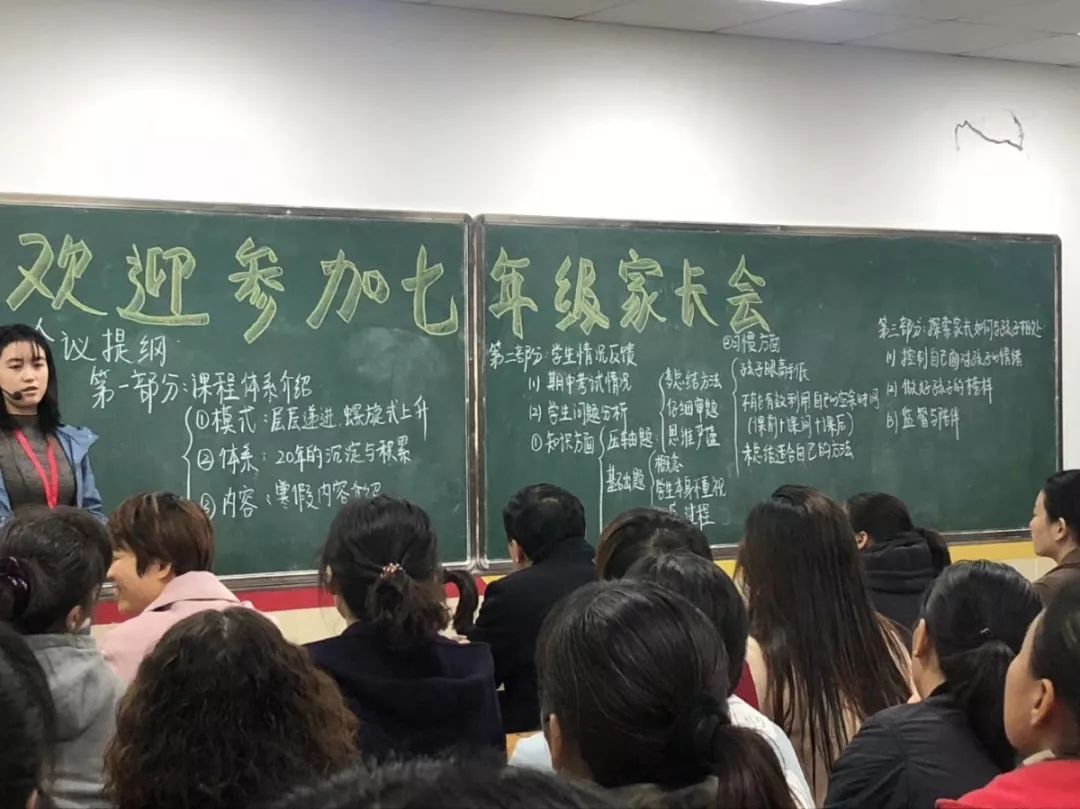 欢迎参加七年级家长会
会议提纲
第一部分:课程体系介绍
①模式:层层递进 螺旋式上升
②体系:20年的沉淀与积累
③内容:寒假内容介绍
第二部分:学生情况反馈
(1) 期中考试情况
(2) 学生问题分析
①知识方面
压轴题
多总结方法
仔细审题
思维严谨
基础题
概念
学生本身不重视
过程
②习惯方面
孩子眼高手低
不能有效利用自己的空余时间
(课前+课间+课后)
未总结适合自己的方法
第三部分:探索家长如何与孩子相处
(1) 控制自己面对孩子的情绪
(2) 做好孩子的榜样
(3) 监督与陪伴